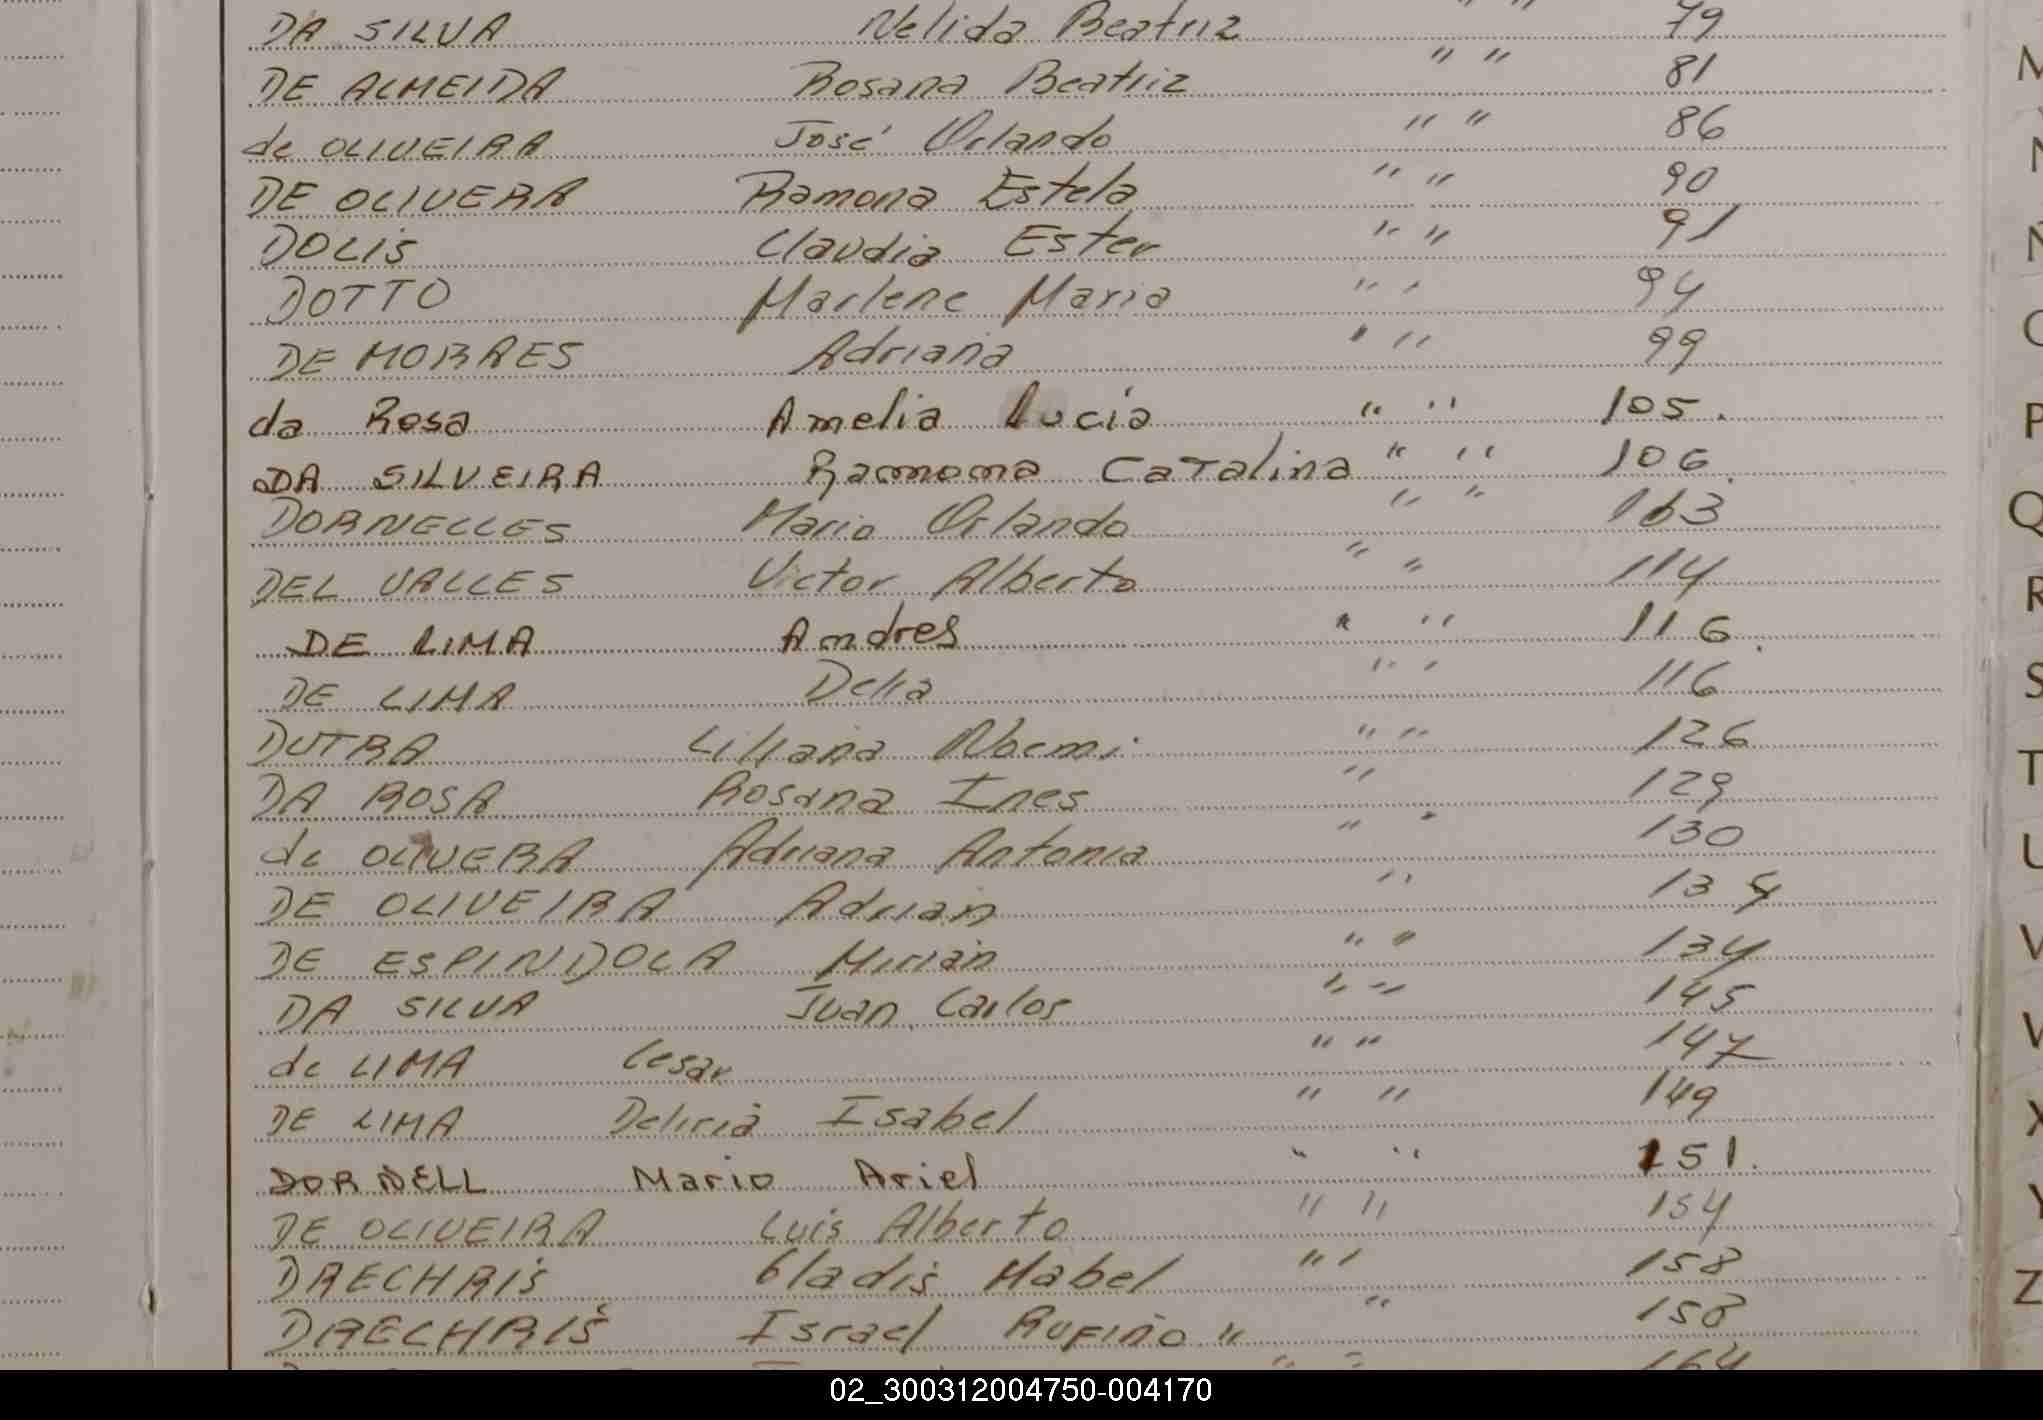 DA SILVA Nelida Beatriz " " 79
DE ALMEIDA Rosana Beatriz " " 81
de OLIVEIRA José Orlando " " 86
DE OLIVERA Ramona Estela " " 90
DOLIS Claudia Ester " " 91
DOTTO Marlene Maria " " 94
DE MORAES Adriana " " 99
da Rosa Amelia Lucia " " 105.
DA SILVEIRA Ramona Catalina " " 106.
DORNELLES Mario Orlando " "
DEL VALLES Victor Alberto " " 114
DE LIMA Andres " " 116.
DE LIMA Delia " " 116
DUTRA Liliana Noemi " " 126
DA ROSA Rosana Ines " 129
de OLIVERA Adriana Antonia " " 130
DE OLIVEIRA Adrian " 134
DE ESPINDOLA Mirian " " 134
DA SILVA Juan Carlos " " 145
de LIMA Cesar " " 147
DE LIMA Deliria Isabel " " 149
DORNELL Mario Ariel " " 151.
DE OLIVEIRA Luis Alberto " " 154
DRECHRIS Gladis Mabel " " 158
DRECHRIS Israel Rufino " " 158
164
M
N
Ñ
O
P
Q
R
S
T
U
V
W
X
Y
Z
02_300312004750-004170